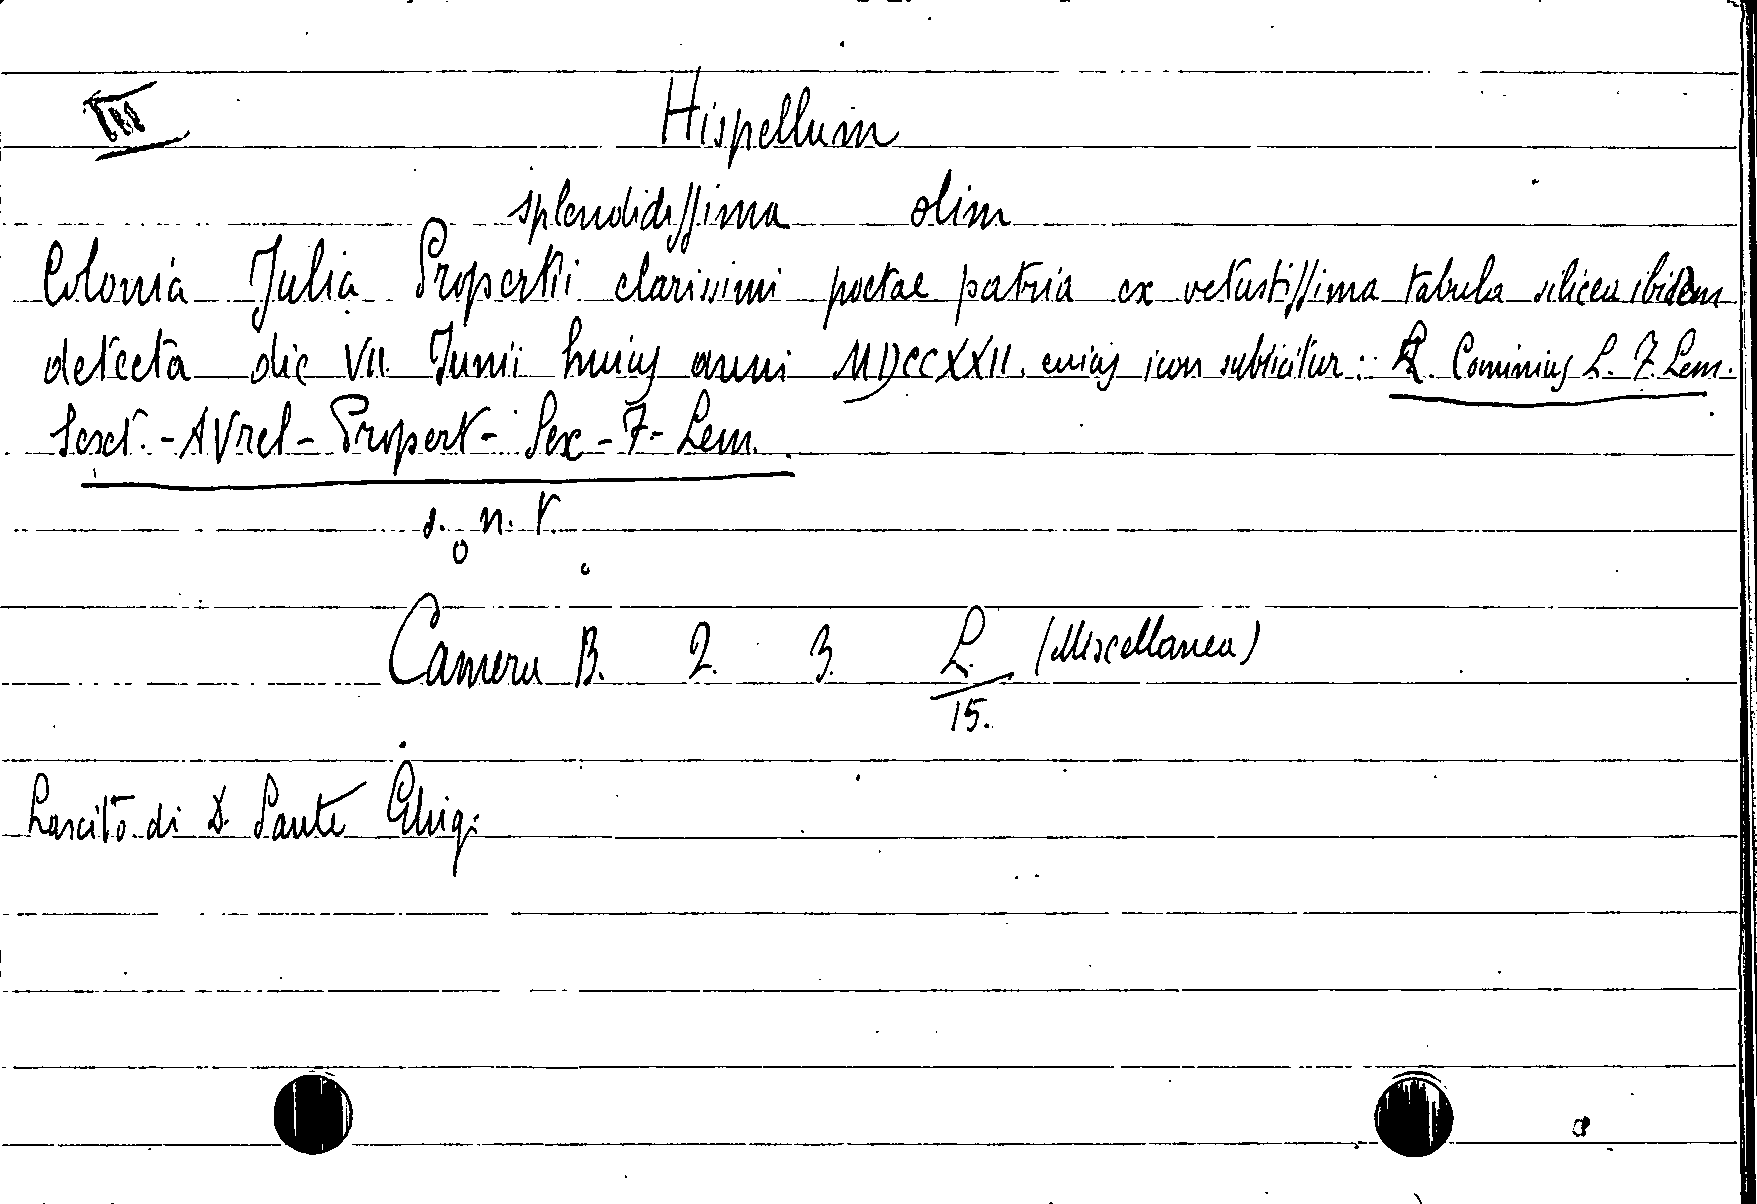 III
Hispellum
splendidissima olim
Colonia Julia Propertii clarissimi poetae patria ex vetustissima tabula silicea ibidem
detecta die VII. Junii huius anni MDCCXXII. cuius icon subiicitur : L. Cominius L. F. Lem.
Sext. - AVrel - Propert - Sex - F - Lem.
s. n. t.
Camera B. 2. 3. L. (Miscellanea)
15.
Lascito di D. Sante Ghig: